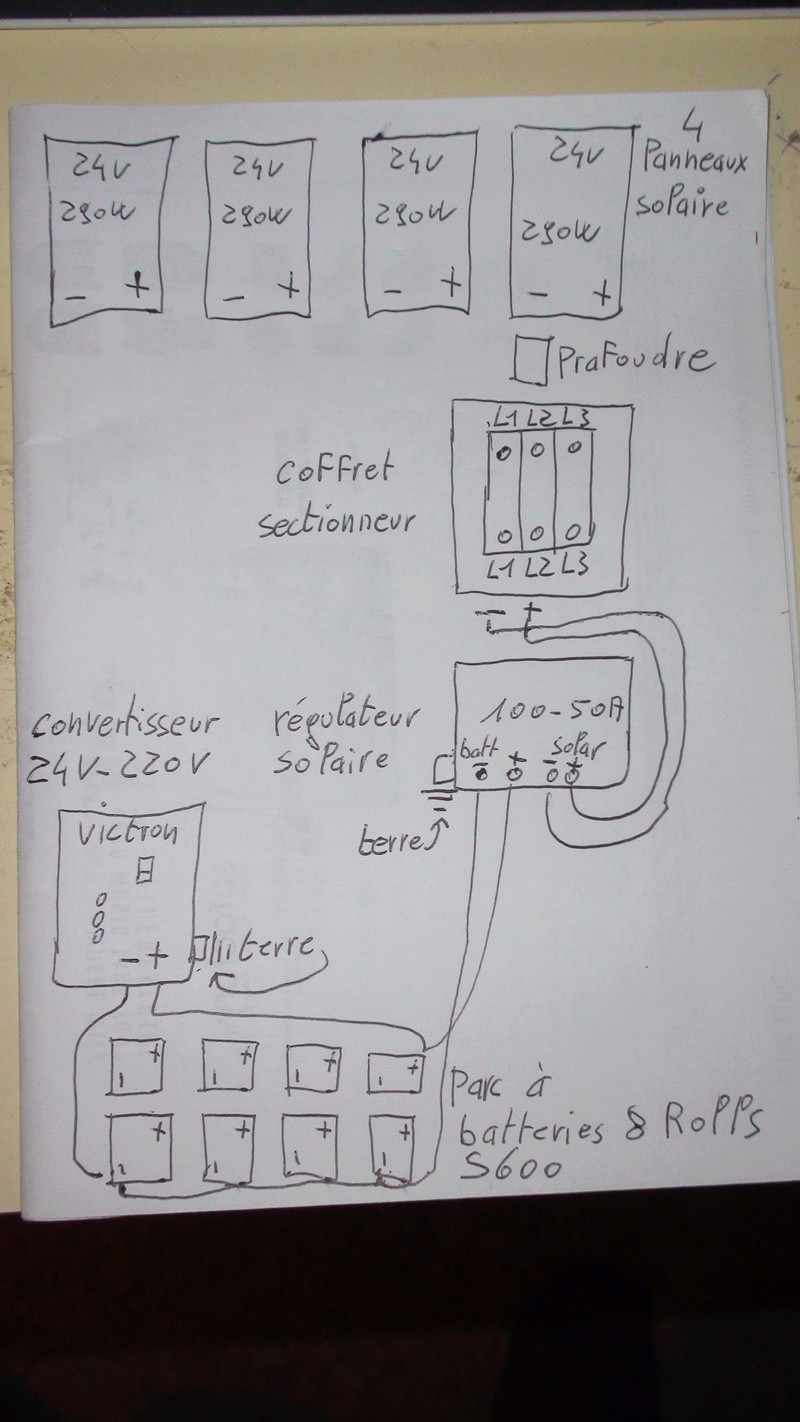 24V 24V 24V 24V
290W 290W 290W 290W
- + - + - + - +
4
Panneaux
soPaire
PraFoudre
L1 L2 L3
coFFret
sectionneur
L1 L2 L3
- +
convertisseur
24V-220V
régulateur
soPaire
100-50A
batt solar
- + - +
terre
Victron
- +
terre
+ + + +
+ + + +
Parc à
batteries 8 RoPPs
S600